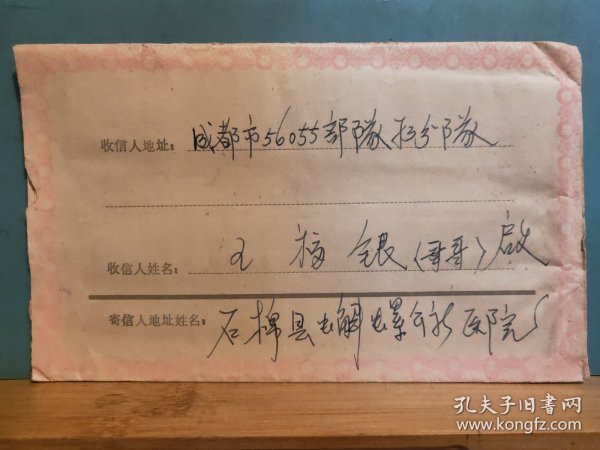 收信人地址：成都市56055部隊 分隊
收信人姓名：王 福 银（哥哥）啟
寄信人地址姓名：石棉县 医院
孔夫子旧书网
www.kongfz.com